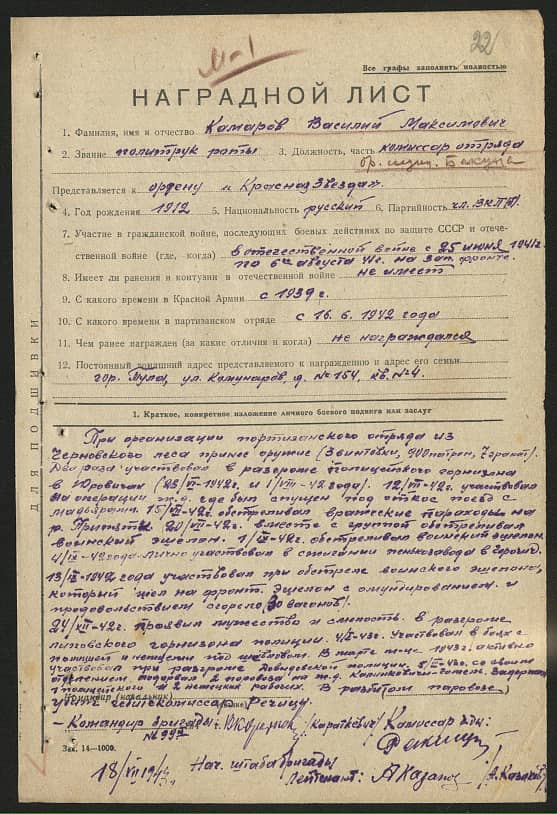 М-1
22
Все графы заполнить полностью
НАГРАДНОЙ ЛИСТ
1. Фамилия, имя и отчество Комаров Василий Максимович
2. Звание политрук роты 3. Должность, часть комиссар отряда
бр. им.
Представляется к ордену „Красная Звезда“
4. Год рождения 1912 5. Национальность русский 6. Партийность чл. ВКП(б)
7. Участие в гражданской войне, последующих боевых действиях по защите СССР и отече-
ственной войне (где, когда) в отечественной войне с 25 июня 1941г.
по 6е августа 41г. на зап. фронте.
8. Имеет ли ранения и контузии в отечественной войне не имеет
9. С какого времени в Красной Армии с 1939 г.
10. С какого времени в партизанском отряде с 16.6.1942 года
11. Чем ранее награжден (за какие отличия и когда) не награждался
12. Постоянный домашний адрес представляемого к награждению и адрес его семьи
гор. Тула, ул. Комунаров, д. № 154, кв. №4.
ДЛЯ ПОДШИВКИ
1. Краткое, конкретное изложение личного боевого подвига или заслуг
При организации портизанского отряда из
леса принес оружие (3 винтовки, 900 патрон, 7 гранат).
Два раза участвовал в разгроме полицейского горнизона
в Юровичах ( /VII-1942г. и 1/VIII-42 года). 12/VIII-42. участвовал
на операции ж.д. где был спущен под откос поезд с
мадьярами. 15/VII-42г. обстреливал вражеские пароходы на
р. Припять. 20/VII-42г. вместе с группой обстреливал
воинский эшелон. 1/IX-42г. обстреливал воинский эшелон
4/IX-42 года лично участвовал в сжигании
13/IX-1942 года участвовал при обстреле воинского эшелона,
который шел на фронт. Эшелон с омундированием и
продовольствием сгорело (30 вагонов).
24/XII-42г. проявил мужество и смелость в разгроме
горнизона полиции. 43г. Участвовал в боях с
полицией и немцами под В марте м-це 1943г. активно
участвовал при разгроме полиции. 43г. со своим
отделением, подорвал 2 паровоза на ж.д. Калинковичи-Гомель. Задержал
1 полицейского и 2 немецких рабочих. В разбитом паровозе
Командир (начальник)
убит Речицу.
- Командир бригады (Короткевич) Комиссар бр-ды:
№ 99
Зак. 14—1000.
18/VII 1943г. Нач. штаба бригады
Лейтенант: А Казаков (А. Казаков)